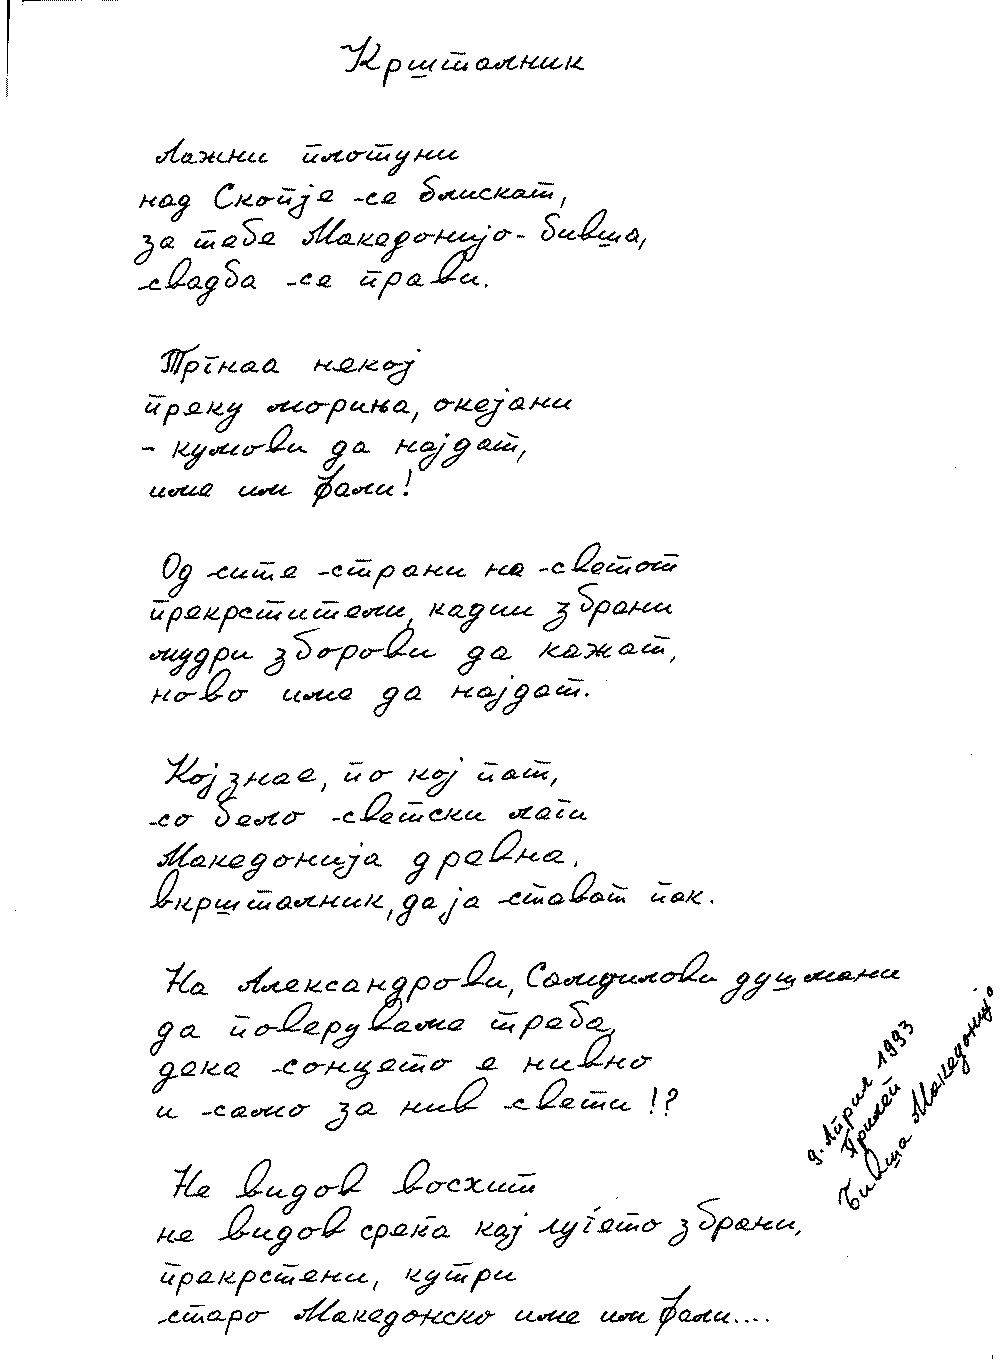 Кршталник
Лажни плотуни
над Скопје се блискат,
за тебе Македонијо - бивша,
свадба се прави.
Тргнаа некој
преку мориња, окејани
- кумови да најдат,
име им фали!
Од сите страни на светот
прекрстители, кадии збрани
мудри зборови да кажат,
ново име да најдат.
Кој знае, по кој пат,
со бело светски лаги
Македонија древна.
вкршталник, да ја стават пак.
На Александрови, Самоилови душмани
да поверуваме треба,
дека сонцето е нивно
и само за нив свети !?
Не видов восхит
не видов среќа кај луѓето збрани,
прекрстени, кутри
старо Македонско име им фали....
9. Април 1993
Прилеп
Бивша Македонијо